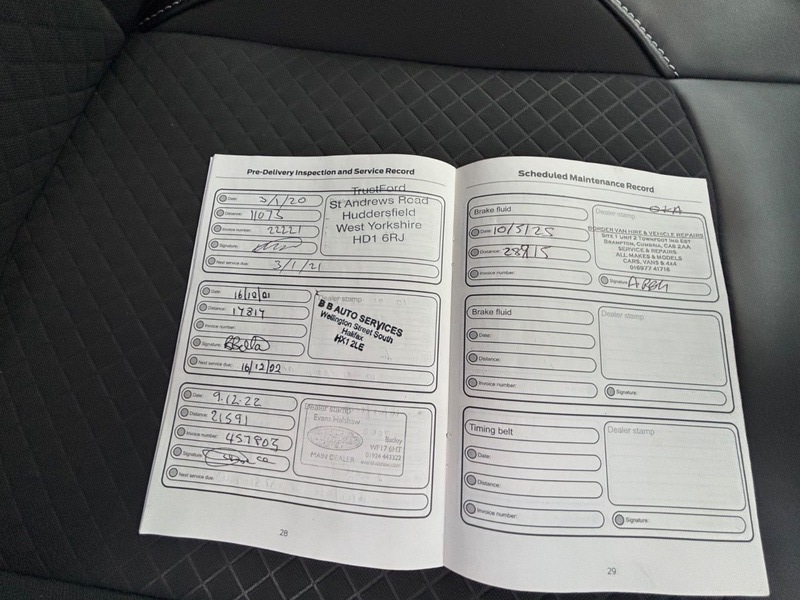 Pre-Delivery Inspection and Service Record
Date: 3/1/20
Distance: 11073
Invoice number: 22221
Signature:
Next service due: 3/1/21
TrustFord
St Andrews Road
Huddersfield
West Yorkshire
HD1 6RJ
Date:
Distance: 17817
Invoice number:
Signature:
Next service due: 16/12/22
Dealer stamp
B B AUTO SERVICES
Wellington Street South
Halifax
HX1 2LE
Date: 9.12.22
Distance: 21591
Invoice number: 457803
Signature:
Next service due:
Dealer stamp
Evans Halshaw
Batley
WF17 6HT
01924 443322
MAIN DEALER
evanshalshaw.com
28
Scheduled Maintenance Record
Brake fluid
Date: 10/5/25
Distance:
Invoice number:
Dealer stamp
BORDER VAN HIRE & VEHICLE REPAIRS
UNIT 2 TOWNFOOT IND EST
BRAMPTON, CUMBRIA, CA8 2AA
SERVICE & REPAIRS
ALL MAKES & MODELS
CARS, VANS & 4x4
016977 41716
Signature:
Brake fluid
Date:
Distance:
Invoice number:
Dealer stamp
Signature:
Timing belt
Date:
Distance:
Invoice number:
Dealer stamp
Signature:
29